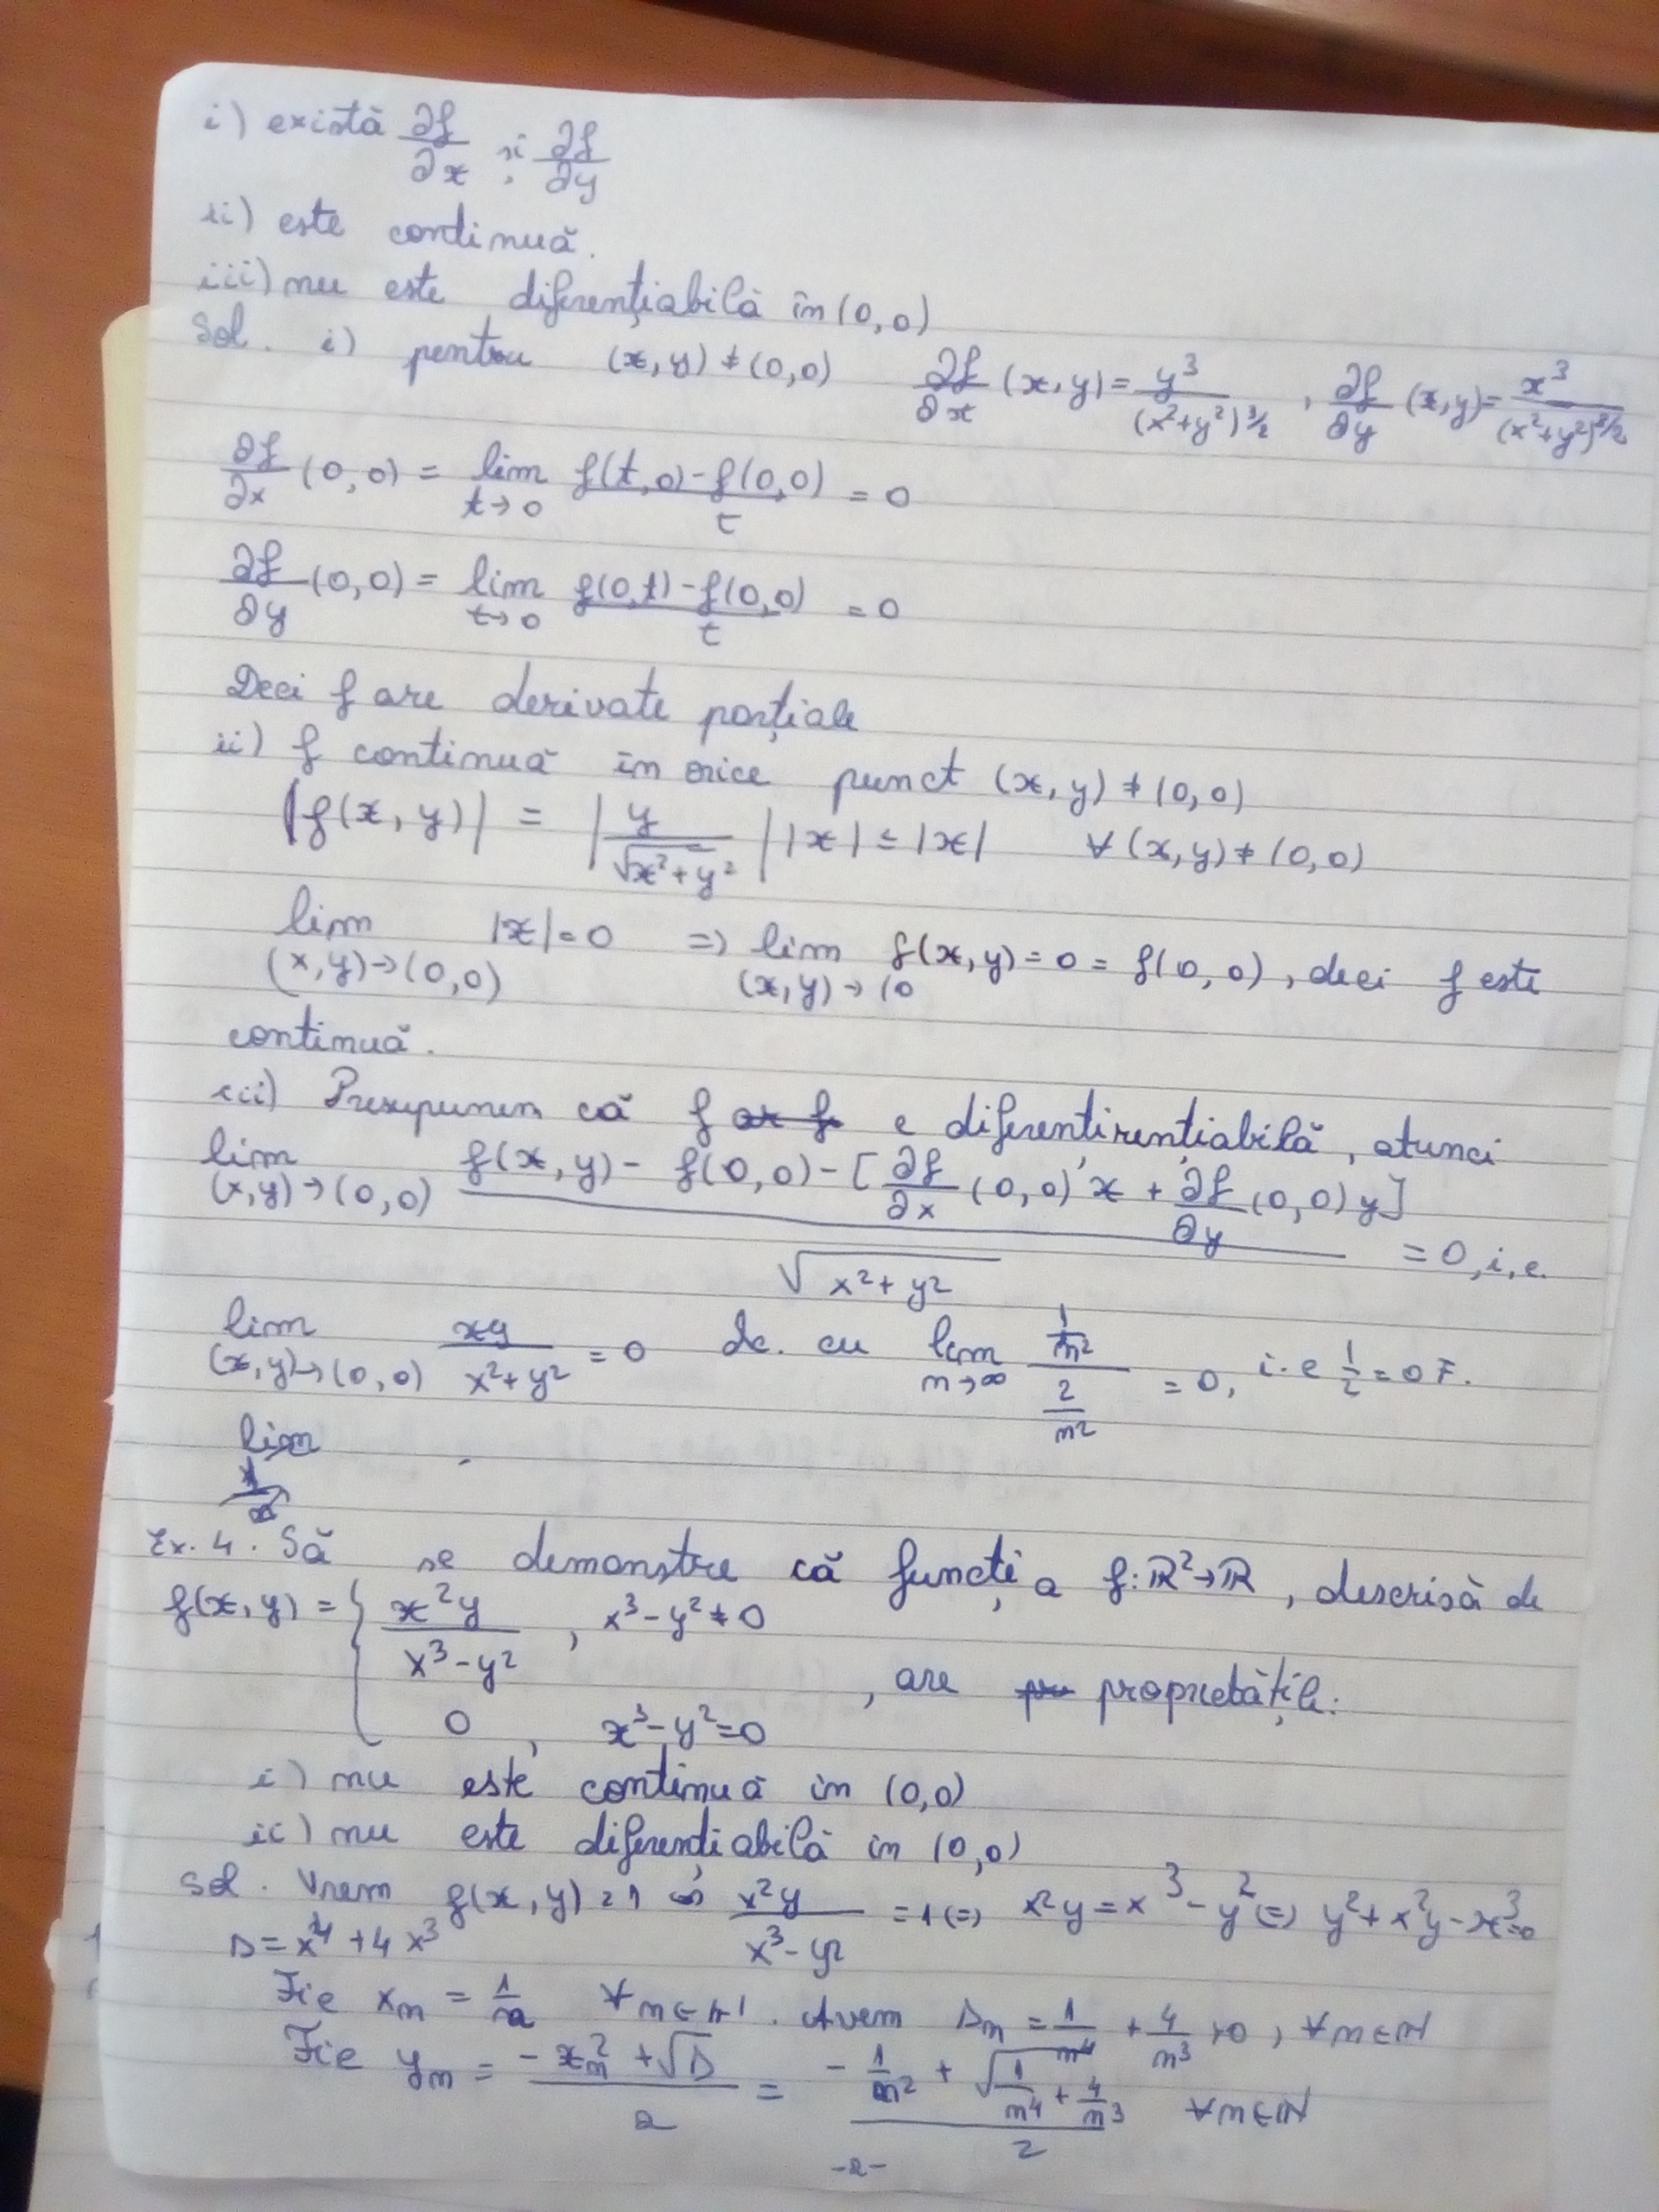 i) există ∂f/∂x și ∂f/∂y
ii) este continuă.
iii) nu este diferențiabilă în (0,0)
Sol. i) pentru (x,y) ≠ (0,0) ∂f/∂x (x,y) = y³/(x²+y²)^3/2 , ∂f/∂y (x,y) = x³/(x²+y²)^3/2
∂f/∂x (0,0) = lim t→0 f(t,0)-f(0,0)/t = 0
∂f/∂y (0,0) = lim t→0 f(0,t)-f(0,0)/t = 0
Deci f are derivate parțiale
ii) f continuă în orice punct (x,y) ≠ (0,0)
|f(x,y)| = |y/√x²+y²| |x| ≤ |x| ∀ (x,y) ≠ (0,0)
lim (x,y)→(0,0) |x| = 0 => lim (x,y)→(0 f(x,y) = 0 = f(0,0), deci f este
continuă.
iii) Presupunem că f e diferențirențiabilă, atunci
lim (x,y)→(0,0) f(x,y) - f(0,0) - [∂f/∂x (0,0) x + ∂f/∂y (0,0) y] / √x²+y² = 0, i.e.
lim (x,y)→(0,0) xy/x²+y² = 0 dc. cu lim n→∞ 1/n² / 2/n² = 0, i.e 1/2 = 0 F.
lim
Ex. 4. Să se demonstre că funcția f: ℝ²→ℝ, descrisă de
f(x,y) = { x²y/x³-y² , x³-y² ≠ 0
, are proprietățile:
0 , x³-y² = 0
i) nu este continuă în (0,0)
ii) nu este diferențiabilă în (0,0)
Sol. Vrem f(x,y) = 1 <=> x²y/x³-y² = 1 <=> x²y = x³-y² <=> y²+x²y-x³=0
Δ = x⁴ + 4x³
Fie xn = 1/n ∀ n ∈ ℕ. Avem Δn = 1/n⁴ + 4/n³ > 0, ∀ n ∈ ℕ
Fie yn = -xn² + √Δ / 2 = -1/n² + √1/n⁴ + 4/n³ / 2 ∀ n ∈ ℕ
-2-